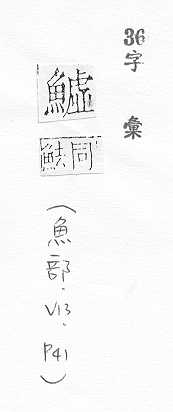 36字彙
鱋
同魼
(魚部.V13.P41)